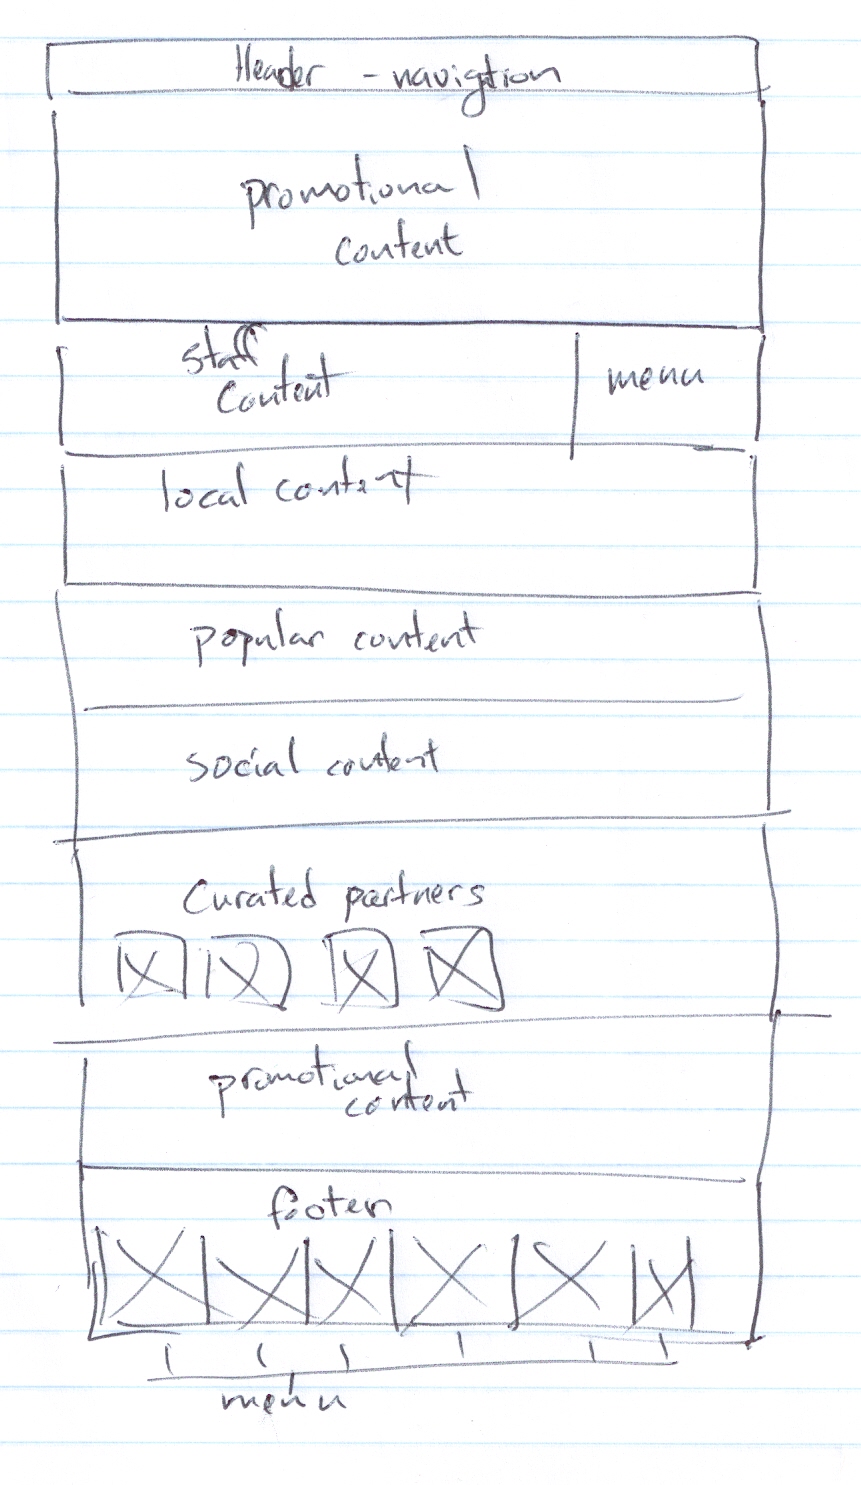 Header - navigtion
promotional
content
staff
Content
menu
local content
popular content
social content
Curated partners
promotional
content
footer
menu